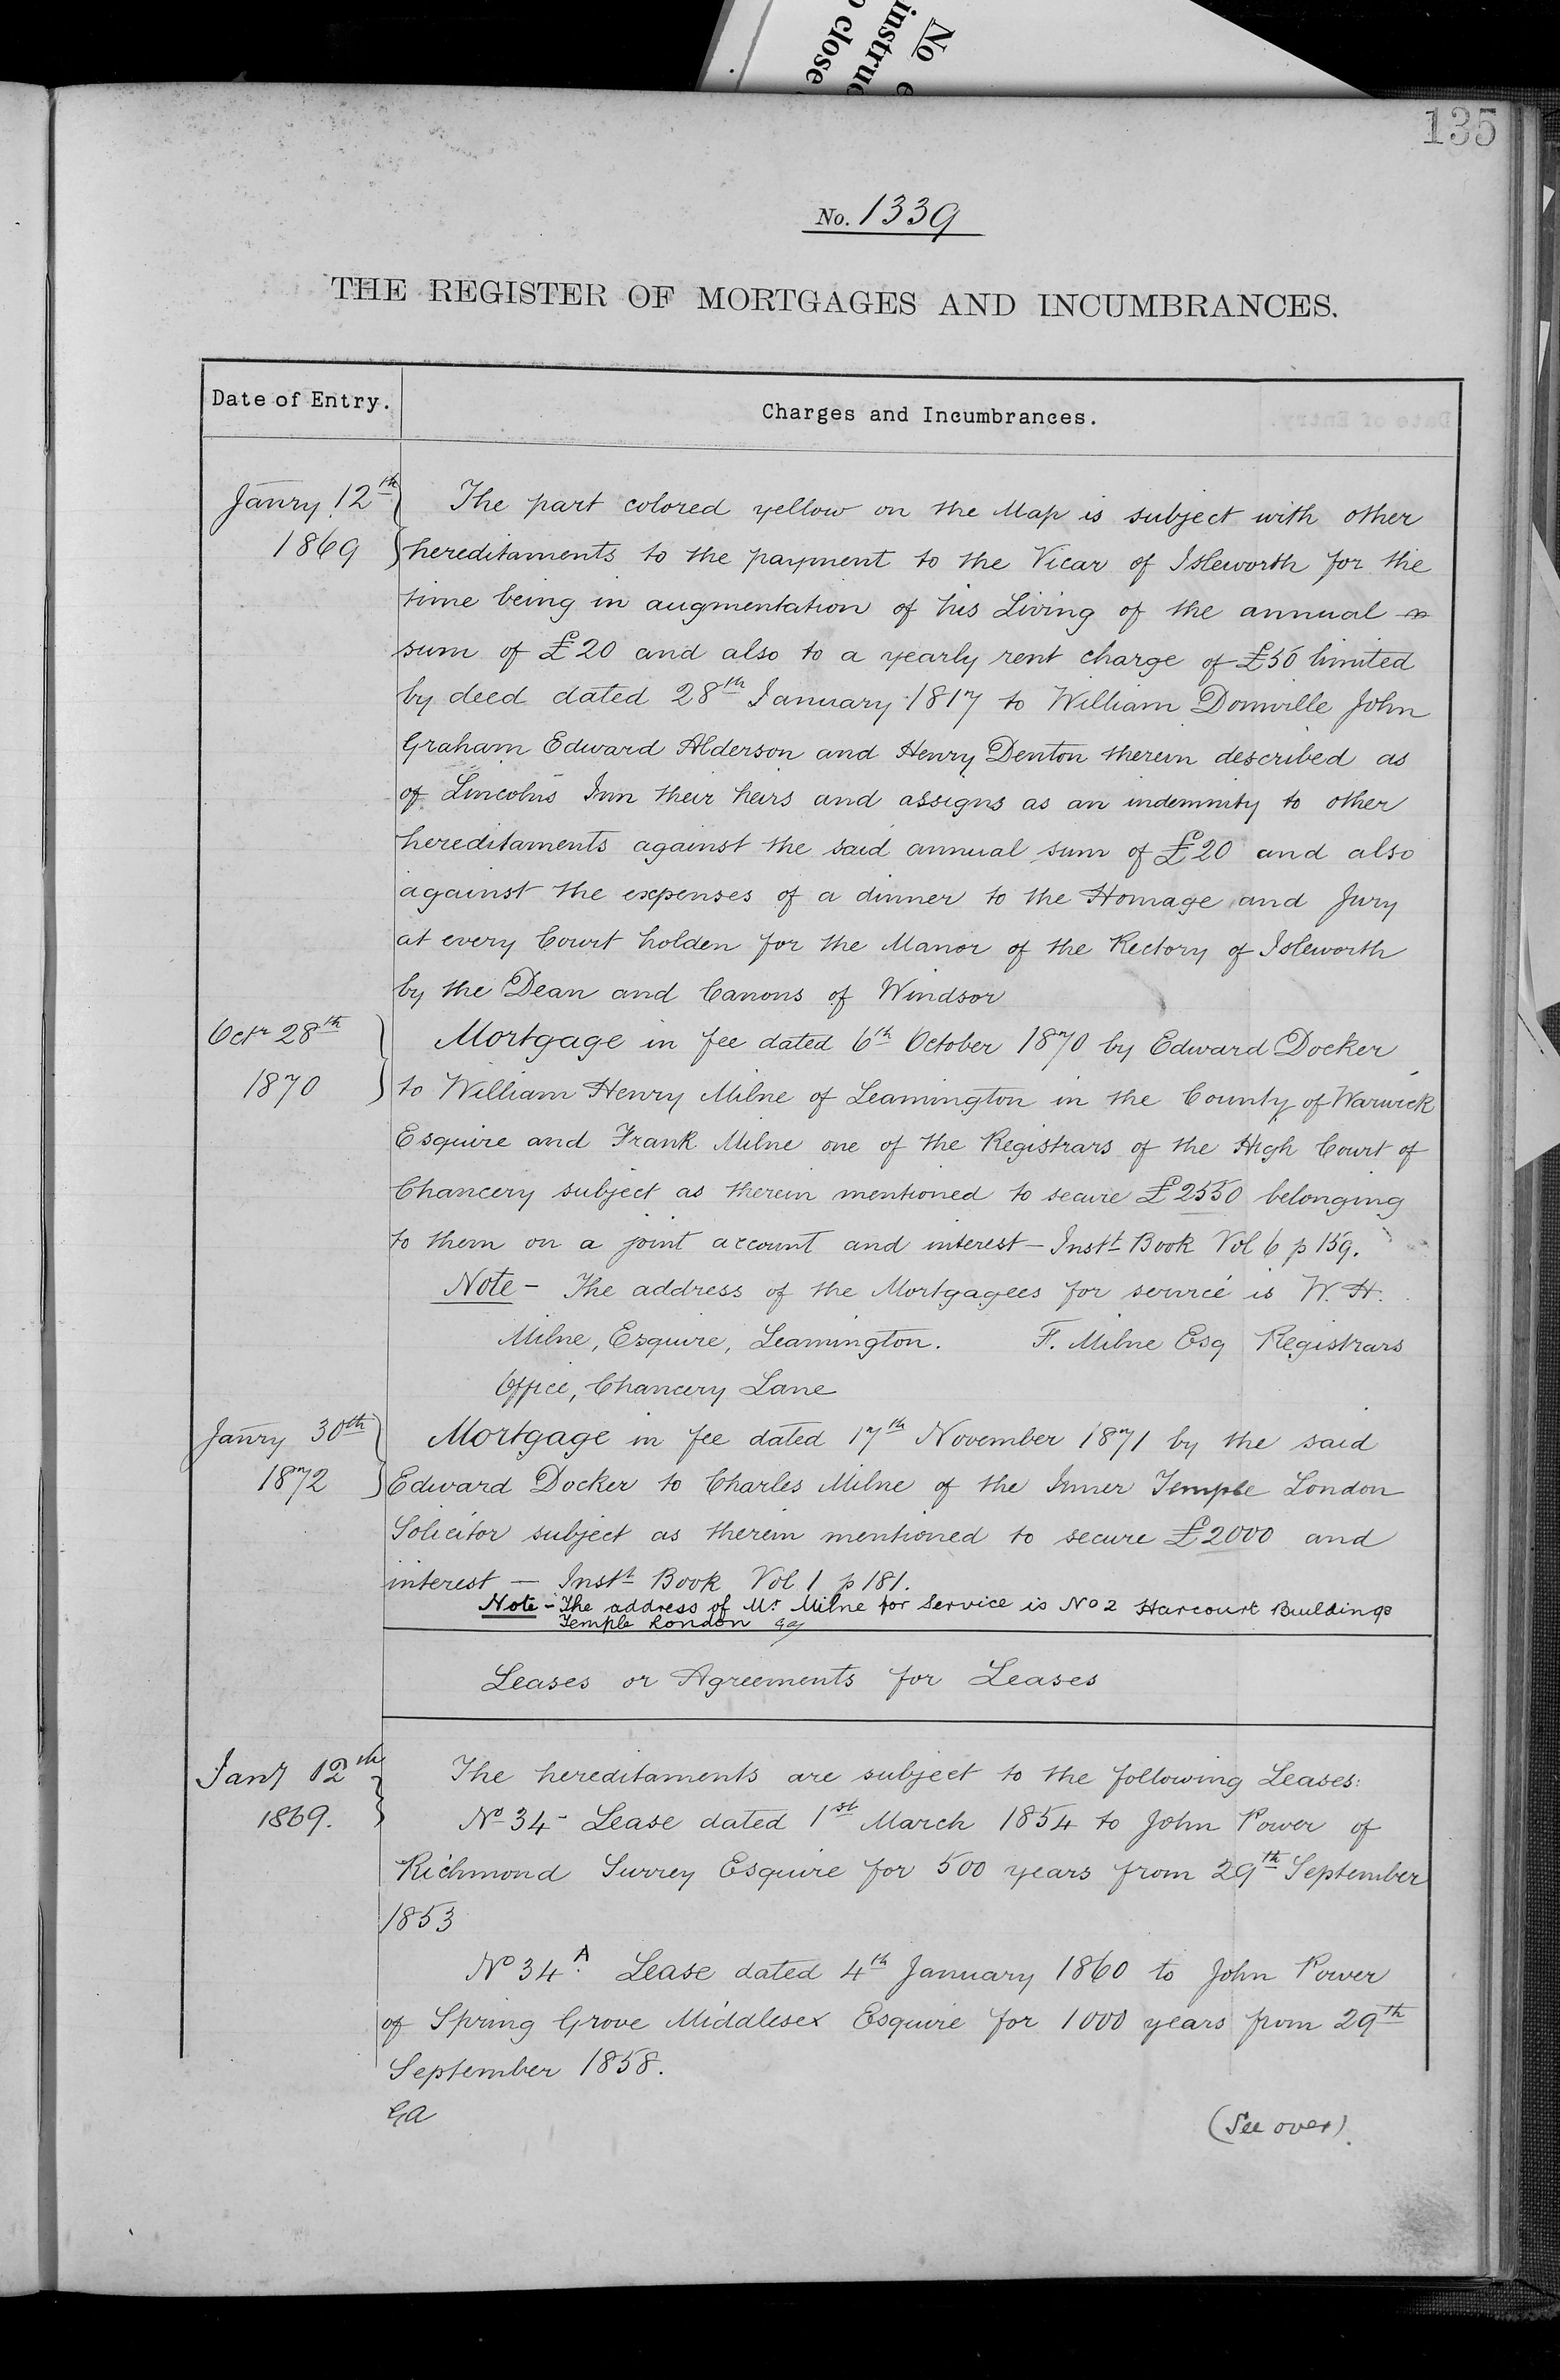 No
instruc
o close
135
No. 1339
THE REGISTER OF MORTGAGES AND INCUMBRANCES.
Date of Entry.
Charges and Incumbrances.
Janry 12th The part colored yellow on the Map is subject with other
1869 hereditaments to the payment to the Vicar of Isleworth for the
time being in augmentation of his Living of the annual
sum of £20 and also to a yearly rent charge of £50 limited
by deed dated 28th January 1817 to William Domville John
Graham Edward Alderson and Henry Denton therein described as
of Lincolns Inn their heirs and assigns as an indemnity to other
hereditaments against the said annual sum of £20 and also
against the expenses of a dinner to the Homage and Jury
at every Court holden for the Manor of the Rectory of Isleworth
by the Dean and Canons of Windsor
Octr 28th Mortgage in fee dated 6th October 1870 by Edward Docker
1870 to William Henry Milne of Leamington in the County of Warwick
Esquire and Frank Milne one of the Registrars of the High Court of
Chancery subject as therein mentioned to secure £2550 belonging
to them on a joint account and interest — Instt Book Vol 6 p 159.
Note — The address of the Mortgagees for service is W. H.
Milne, Esquire, Leamington. F. Milne Esq Registrars
Office, Chancery Lane
Janry 30th Mortgage in fee dated 17th November 1871 by the said
1872 Edward Docker to Charles Milne of the Inner Temple London
Solicitor subject as therein mentioned to secure £2000 and
interest — Instt Book Vol 1 p 181.
Note - The address of Mr Milne for Service is No 2 Harcourt Buildings
Temple London
Leases or Agreements for Leases
Jany 12th The hereditaments are subject to the following Leases:
1869. No 34 - Lease dated 1st March 1854 to John Power of
Richmond Surrey Esquire for 500 years from 29th September
1853
No 34A. Lease dated 4th January 1860 to John Power
of Spring Grove Middlesex Esquire for 1000 years from 29th
September 1858.
GA
(See over).